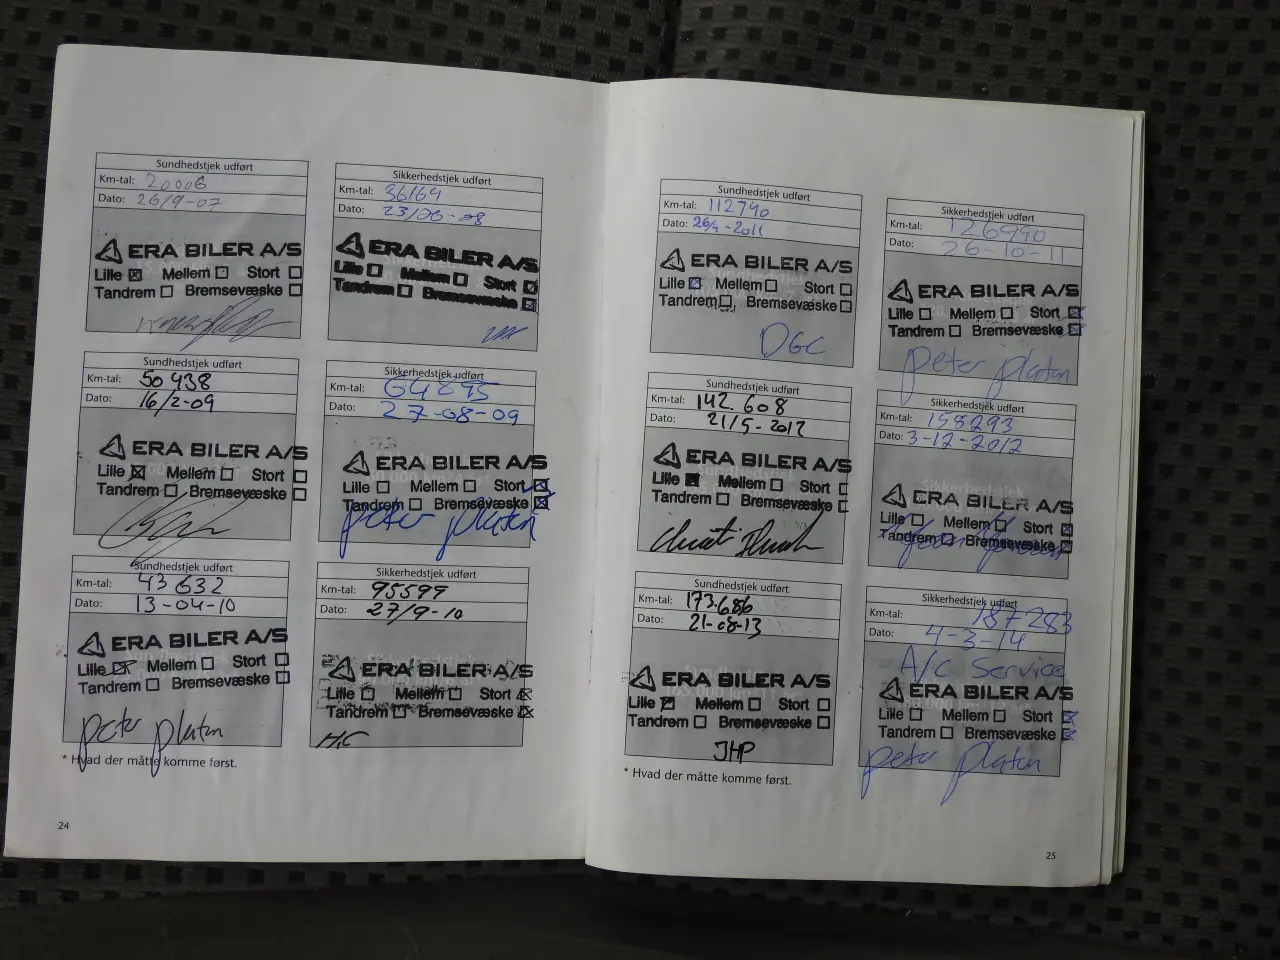 Sundhedstjek udført
Km-tal: 20006
Dato: 26/9-07
ERA BILER A/S
Lille Mellem Stort
Tandrem Bremsevæske
Sikkerhedstjek udført
Km-tal: 36164
Dato: 23/06-08
ERA BILER A/S
Lille Mellem Stort
Tandrem Bremsevæske
Sundhedstjek udført
Km-tal: 50 438
Dato: 16/2-09
ERA BILER A/S
Lille Mellem Stort
Tandrem Bremsevæske
Sikkerhedstjek udført
Km-tal: 64895
Dato: 27-08-09
ERA BILER A/S
Lille Mellem Stort
Tandrem Bremsevæske
peter platan
Sundhedstjek udført
Km-tal: 43 632
Dato: 13-04-10
ERA BILER A/S
Lille Mellem Stort
Tandrem Bremsevæske
peter platan
Sikkerhedstjek udført
Km-tal: 95599
Dato: 27/9-10
ERA BILER A/S
Lille Mellem Stort
Tandrem Bremsevæske
HC
* Hvad der måtte komme først.
24
Sundhedstjek udført
Km-tal: 112790
Dato: 26/4-2011
ERA BILER A/S
Lille Mellem Stort
Tandrem Bremsevæske
OGC
Sikkerhedstjek udført
Km-tal: 126990
Dato: 26-10-11
ERA BILER A/S
Lille Mellem Stort
Tandrem Bremsevæske
peter platan
Sundhedstjek udført
Km-tal: 142.608
Dato: 21/5-2012
ERA BILER A/S
Lille Mellem Stort
Tandrem Bremsevæske
Sikkerhedstjek udført
Km-tal: 158293
Dato: 3-12-2012
ERA BILER A/S
Lille Mellem Stort
Tandrem Bremsevæske
Sundhedstjek udført
Km-tal: 173.686
Dato: 21-08-13
ERA BILER A/S
Lille Mellem Stort
Tandrem Bremsevæske
JHP
Sikkerhedstjek udført
Km-tal: 187283
Dato: 4-3-14
A/C Service
ERA BILER A/S
Lille Mellem Stort
Tandrem Bremsevæske
peter platan
* Hvad der måtte komme først.
25